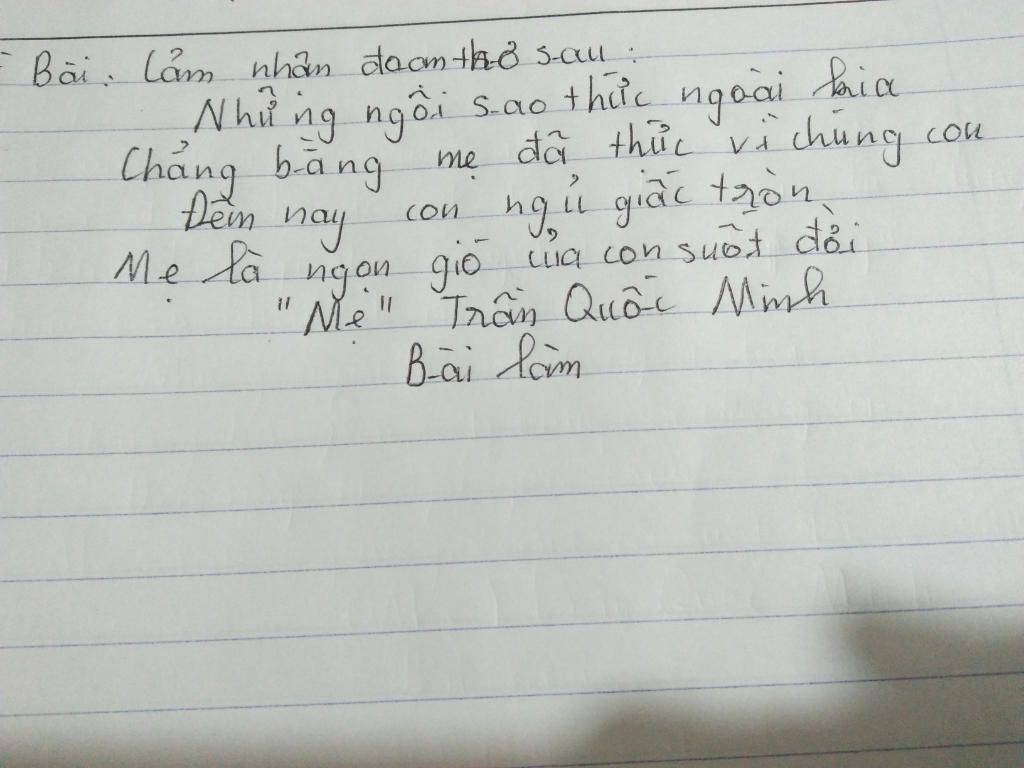 Bài. Cảm nhận đoạn thơ sau:
Những ngôi sao thức ngoài kia
Chẳng bằng mẹ đã thức vì chúng con
Đêm nay con ngủ giấc tròn
Mẹ là ngọn gió của con suốt đời
"Mẹ" Trần Quốc Minh
Bài làm